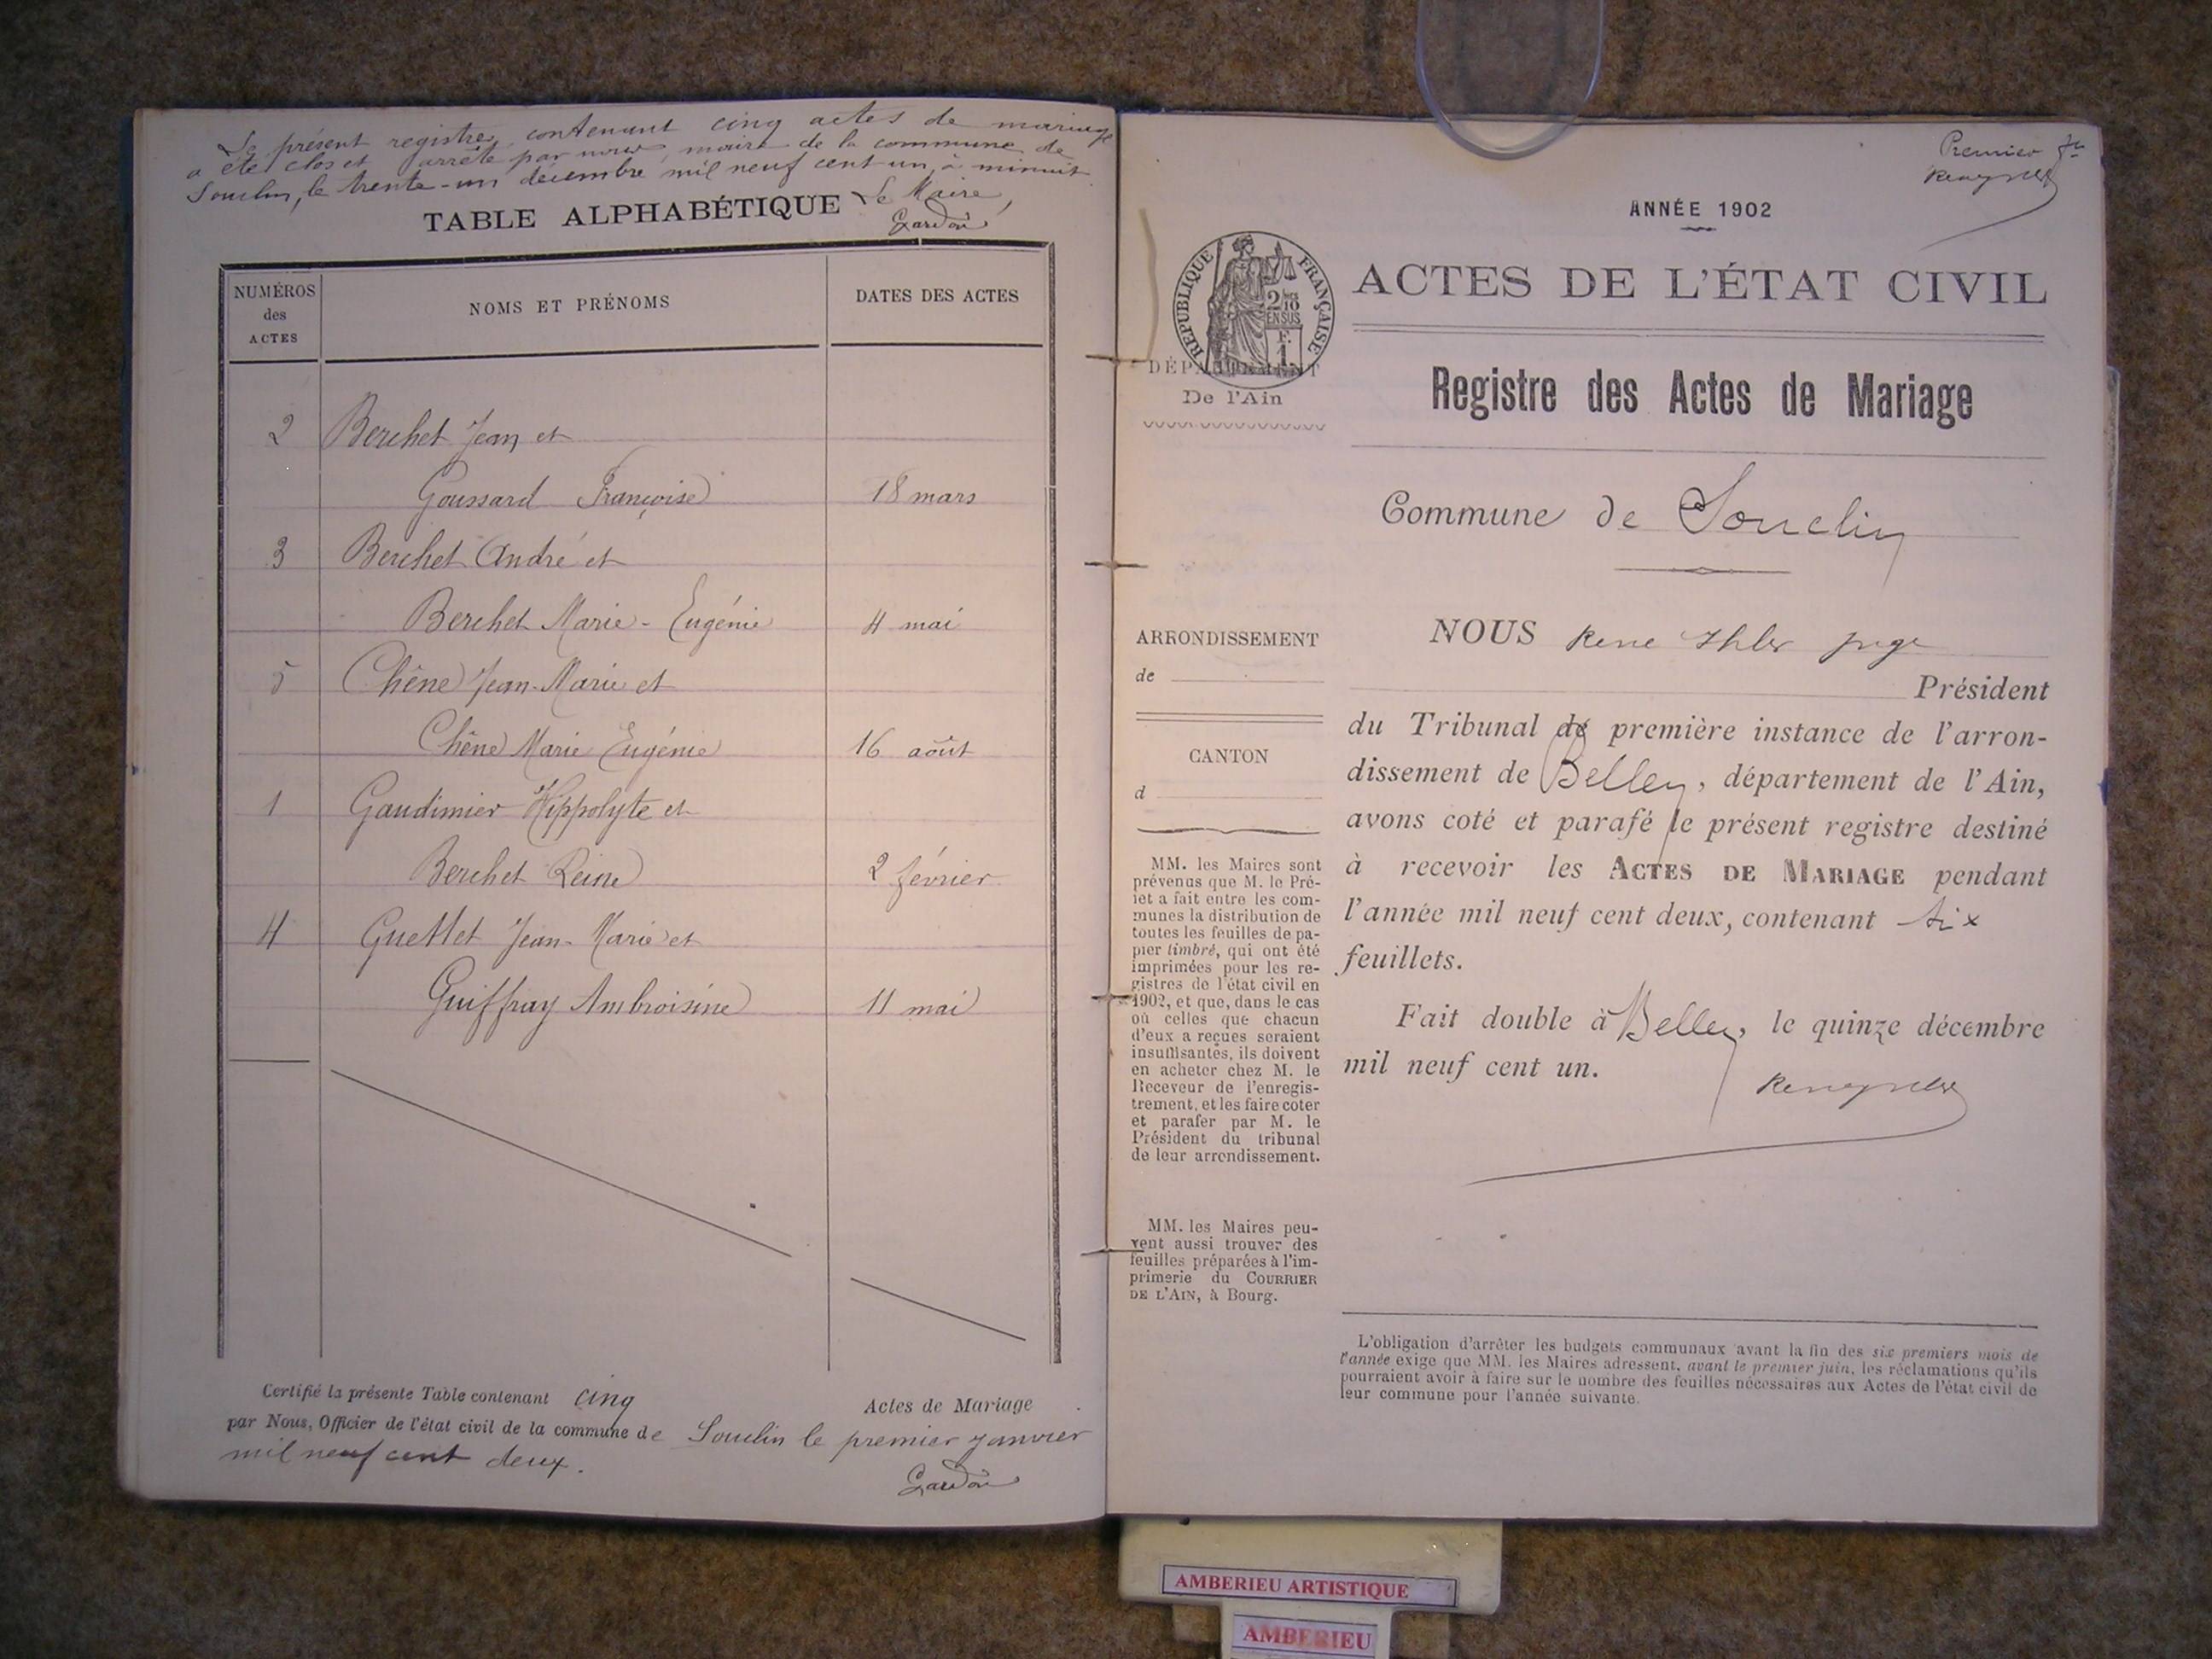 Le présent registre, contenant cinq actes de mariage
a été clos et arrêté par nous, maire de la commune de
Souclin, le trente-un décembre mil neuf cent un, à minuit.
Le Maire,
TABLE ALPHABÉTIQUE
Gardon
NUMÉROS des ACTES
NOMS ET PRÉNOMS
DATES DES ACTES
2 Berchet Jean et
Goussard Françoise 18 mars
3 Berchet André et
Berchet Marie-Eugénie 4 mai
5 Chêne Jean-Marie et
Chêne Marie Eugénie 16 août
1 Gaudimier Hippolyte et
Berchet Reine 2 février
4 Guettet Jean-Marie et
Guiffray Ambroisine 11 mai
Certifié la présente Table contenant cinq Actes de Mariage
par Nous, Officier de l'état civil de la commune de Souclin le premier janvier
mil neuf cent deux.
Gardon
Premier
ANNÉE 1902
RÉPUBLIQUE FRANÇAISE
2/10 EN SUS
F. 1.
ACTES DE L'ÉTAT CIVIL
DÉPARTEMENT
De l'Ain
Registre des Actes de Mariage
Commune de Souclin
ARRONDISSEMENT
de
CANTON
d
MM. les Maires sont
prévenus que M. le Pré-
fet a fait entre les com-
munes la distribution de
toutes les feuilles de pa-
pier timbré, qui ont été
imprimées pour les re-
gistres de l'état civil en
1902, et que, dans le cas
où celles que chacun
d'eux a reçues seraient
insuffisantes, ils doivent
en acheter chez M. le
Receveur de l'enregis-
trement, et les faire coter
et parafer par M. le
Président du tribunal
de leur arrondissement.
MM. les Maires peu-
vent aussi trouver des
feuilles préparées à l'im-
primerie du COURRIER
DE L'AIN, à Bourg.
NOUS René Ihler juge
Président
du Tribunal de première instance de l'arron-
dissement de Belley, département de l'Ain,
avons coté et parafé le présent registre destiné
à recevoir les ACTES DE MARIAGE pendant
l'année mil neuf cent deux, contenant six
feuillets.
Fait double à Belley, le quinze décembre
mil neuf cent un.
L'obligation d'arrêter les budgets communaux avant la fin des six premiers mois de
l'année exige que MM. les Maires adressent, avant le premier juin, les réclamations qu'ils
pourraient avoir à faire sur le nombre des feuilles nécessaires aux Actes de l'état civil de
leur commune pour l'année suivante.
AMBERIEU ARTISTIQUE
AMBERIEU